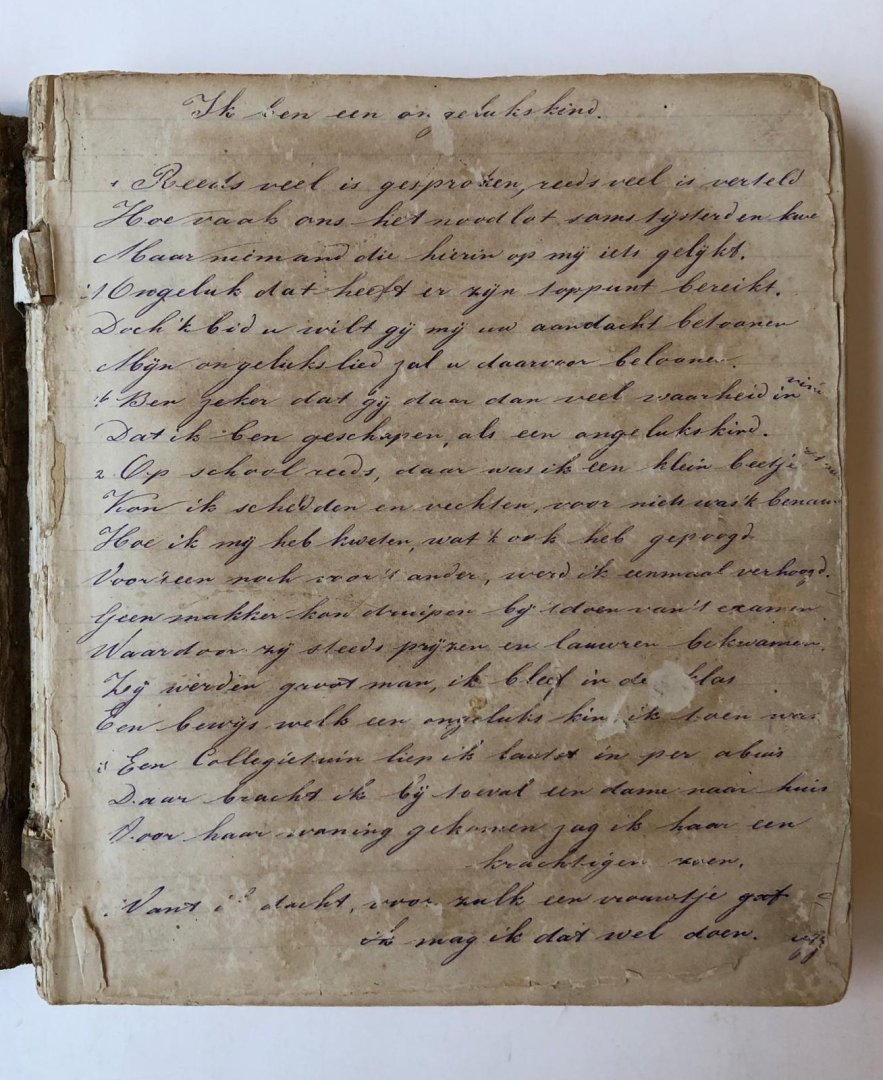 Ik ben een ongelukskind.
1 Reeds veel is gesproken, reeds veel is verteld
Hoe vaak ons het noodlot soms tijsterd en kwe
Maar niemand die hierin op mij iets gelijkt.
't Ongeluk dat heeft er zijn toppunt bereikt.
Doch 'k bid u wilt gij mij uw aandacht betoonen
Mijn ongelukslied zal u daarvoor beloonen.
'k Ben zeker dat gij daar dan veel waarheid in vin
Dat ik ben geschapen, als een ongelukskind.
2. Op school reeds, daar was ik een klein beetje
Kon ik schelden en vechten, voor niets was 'k benauw
Hoe ik mij heb kweten, wat 'k ook heb gepoogd
Voor 't een noch voor 't ander, werd ik eenmaal verhoogd.
Geen makker kon druipen bij 't doen van 't examen
Waardoor zij steeds prijzen en lauwren bekwamen.
Zij werden groot man, ik bleef in de klas
Een bewijs welk een ongeluks kind ik toen was
3 Een Collegietuin liep ik laatst in per abuis
Daar bracht ik bij toeval een dame naar huis
Voor haar woning gekomen zag ik haar een
krachtigen zoen.
Want ik dacht, voor zulk een vrouwtje
ik mag ik dat wel doen.